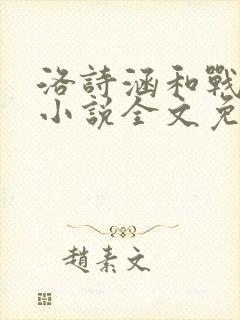 洛詩涵和戰
小說全文免
趙素文